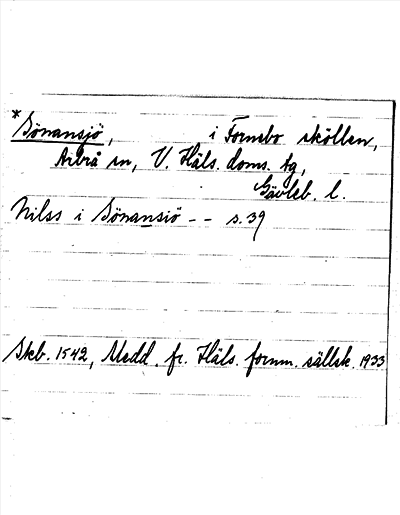 *Sönansjö, i Fornebo skötten,
Arbrå sn, V. Häls. doms. tg,
Gävleb. l.
Nilss i Sönansiö - - s. 39
Skb. 1542, Medd. fr. Häls. fornm. sällsk. 1933